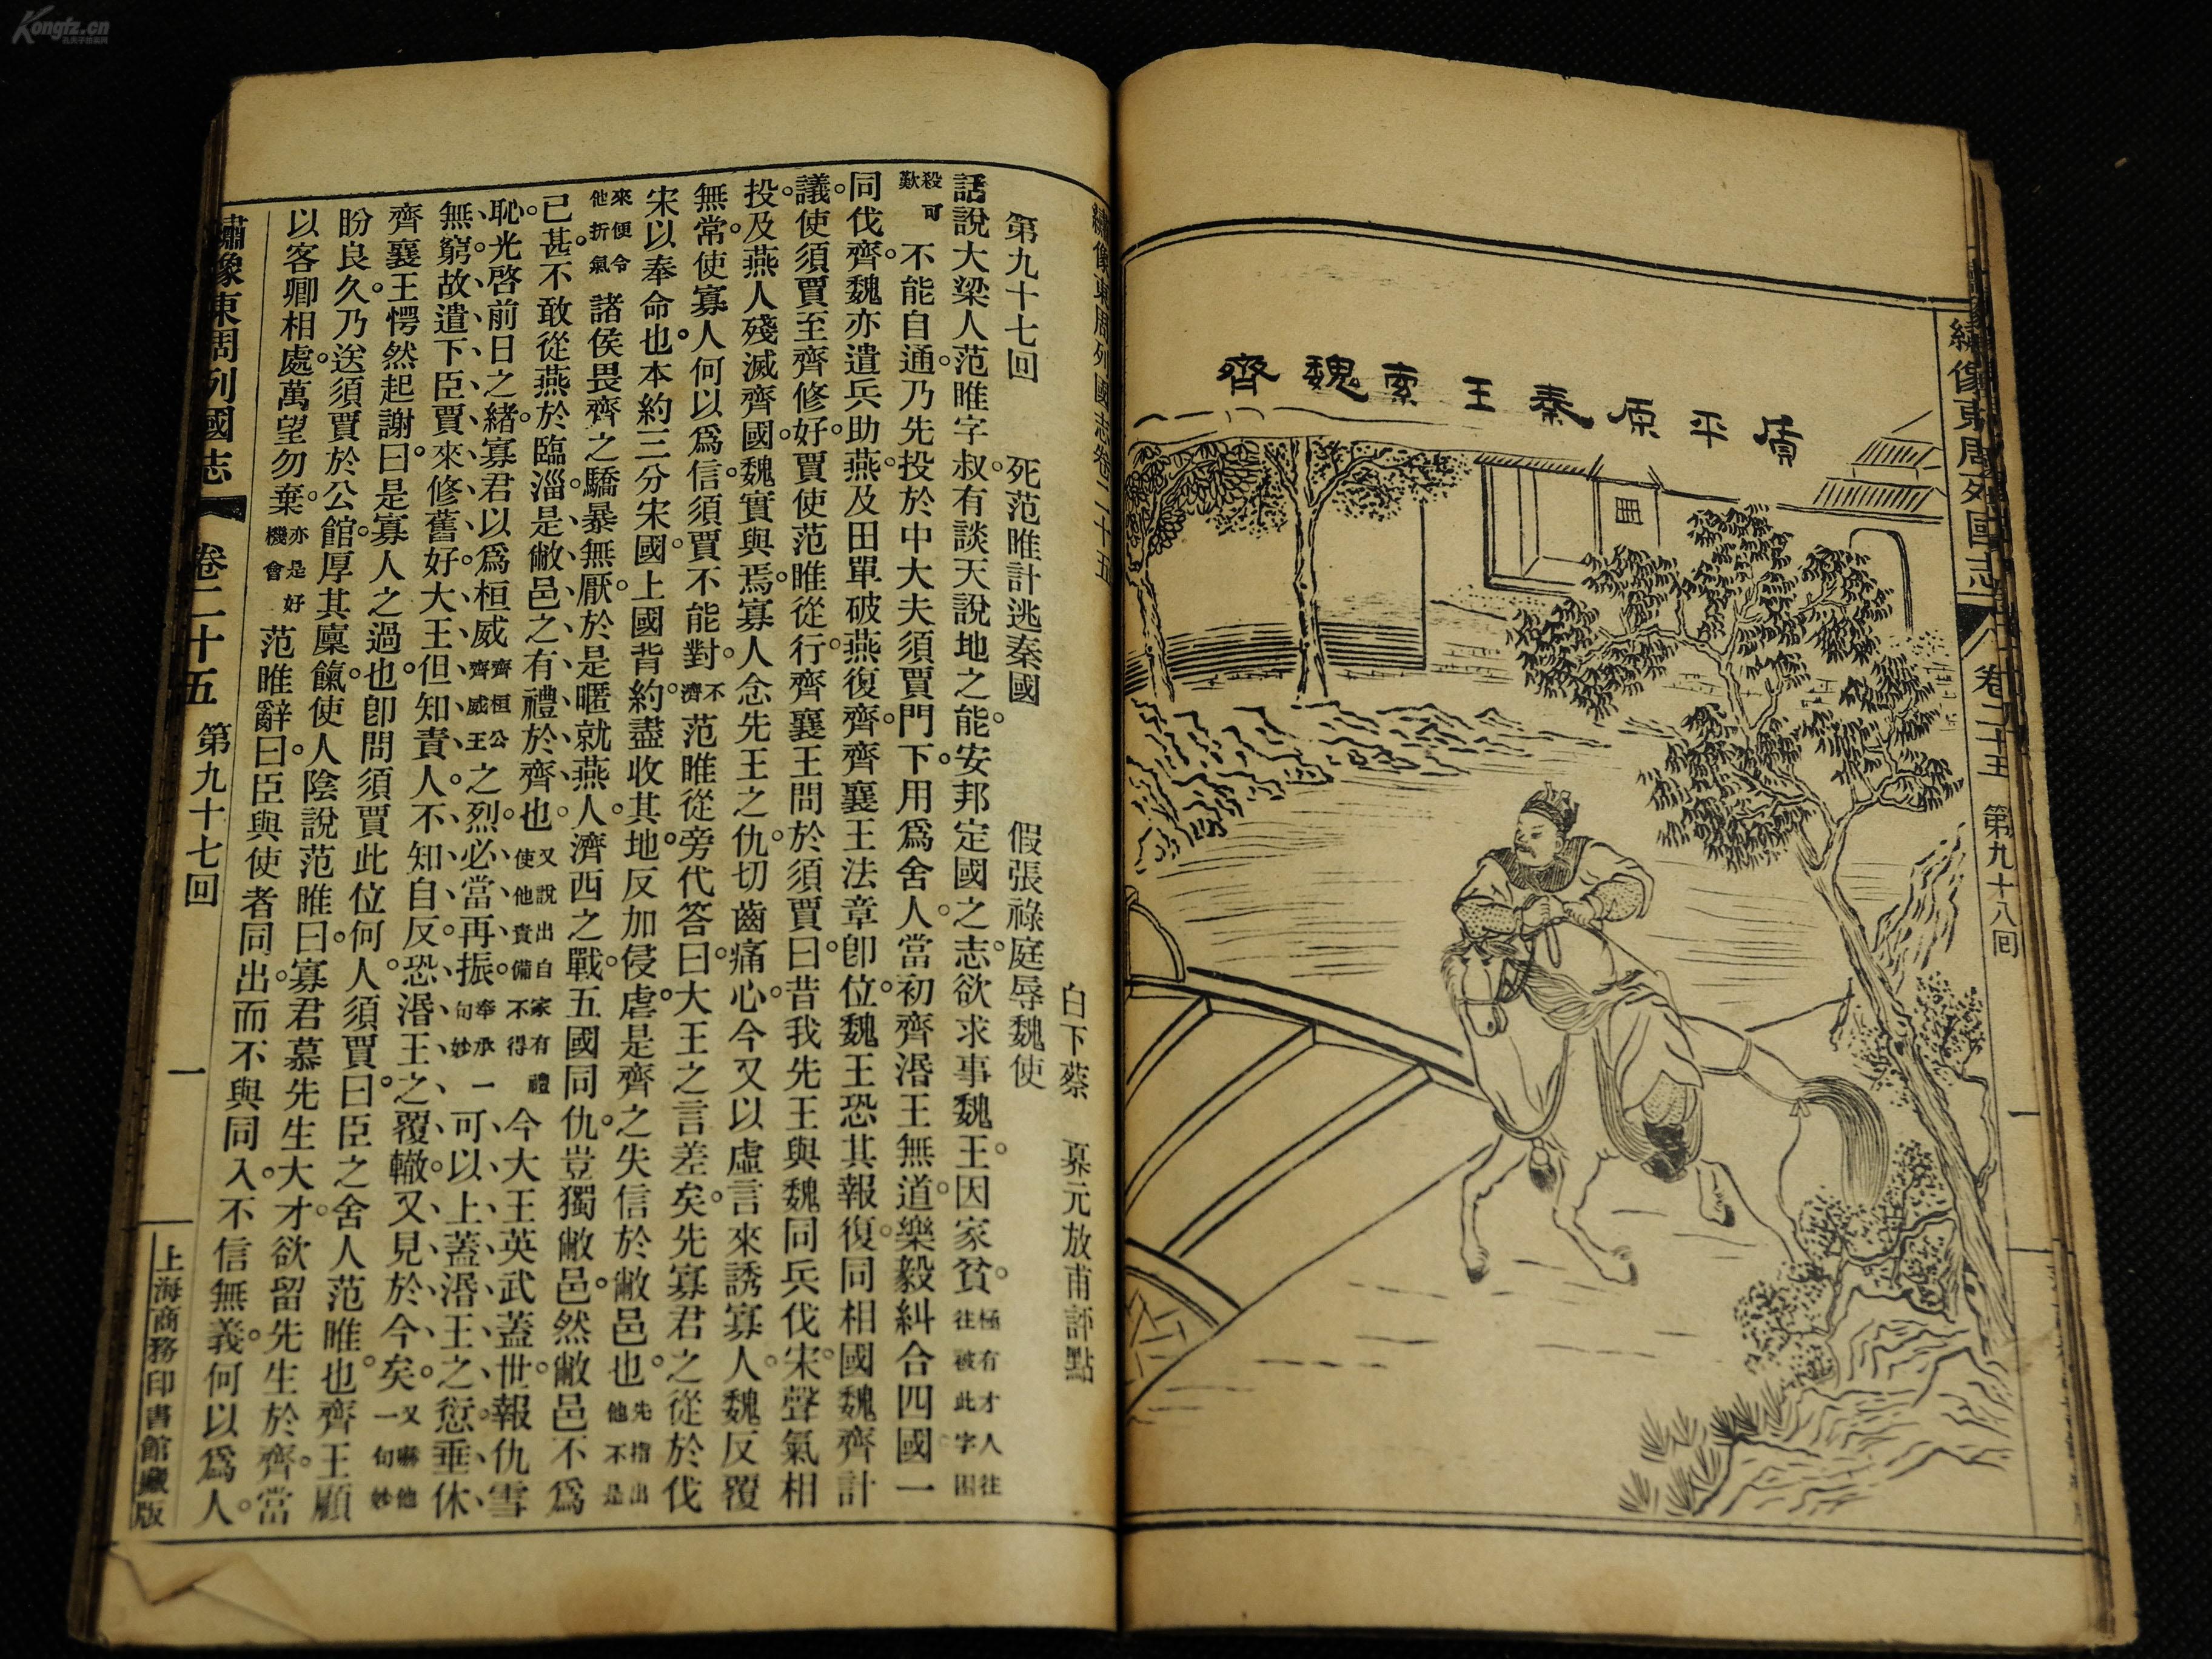 Kongfz.cn
孔夫子旧书网
繡像東周列國志
卷二十五
第九十八囘
一
質平原秦王索魏齊
繡像東周列國志卷二十五
白下蔡　奡元放甫評點
第九十七回　死范睢計逃秦國　假張祿庭辱魏使
話說大梁人范睢字叔有談天說地之能。安邦定國之志。欲求事魏王。因家貧。極有才人往往被此字困
殺可歎不能自通。乃先投於中大夫須賈門下。用爲舍人。當初齊湣王無道。樂毅糾合四國一
同伐齊。魏亦遣兵助燕。及田單破燕復齊。齊襄王法章卽位。魏王恐其報復。同相國魏齊計
議。使須賈至齊修好。賈使范睢從行。齊襄王問於須賈曰。昔我先王與魏同兵伐宋。聲氣相
投。及燕人殘滅齊國。魏實與焉。寡人念先王之仇。切齒痛心。今又以虛言來誘寡人。魏反覆
無常。使寡人何以爲信。須賈不能對。不濟范睢從旁代答曰。大王之言差矣。先寡君之從於伐
宋。以奉命也。本約三分宋國。上國背約。盡收其地。反加侵虐。是齊之失信於敝邑也。先指出他不是
來便令他折氣諸侯畏齊之驕暴無厭。於是暱就燕人。濟西之戰。五國同仇。豈獨敝邑。然敝邑不爲
已甚。不敢從燕於臨淄。是敝邑之有禮於齊也。又說出自家有禮使他責備不得今大王英武蓋世。報仇雪
恥。光啓前日之緒。寡君以爲桓威齊桓公齊威王之烈。必當再振。奉承一句妙可以上蓋湣王之愆。垂休
無窮。故遣下臣賈來修舊好。大王但知責人。不知自反。恐湣王之覆轍。又見於今矣。又嚇他一句妙
齊襄王愕然起謝曰。是寡人之過也。卽問須賈此位何人。須賈曰。臣之舍人范睢也。齊王顧
盼良久。乃送須賈於公館。厚其廩餼。使人陰說范睢曰。寡君慕先生大才。欲留先生於齊。當
以客卿相處。萬望勿棄。亦是好機會范睢辭曰。臣與使者同出。而不與同入。不信無義。何以爲人。
繡像東周列國志
卷二十五
第九十七回
一
上海商務印書館藏版